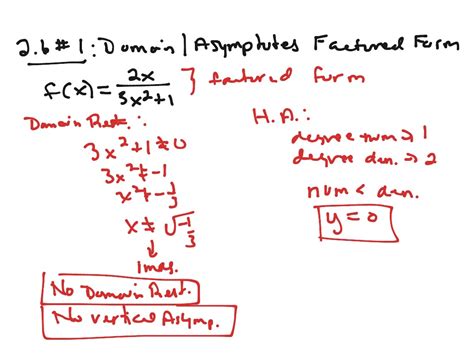 2.6 # 1 : Domain | Asymptotes Factured Form
f(x) = 2x / 3x²+1 } factured form
Domain Rest. ∴
3x²+1 ≠ 0
3x² ≠ -1
x² ≠ -1/3
x ≠ √-1/3
↓
Imag.
No Domain Rest.
No vertical Asymp.
H.A. ∴
degree num → 1
degree den. → 2
num < den.
y = 0